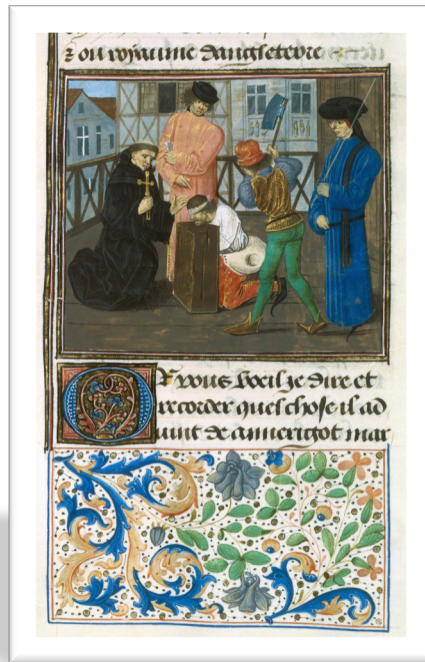 z ou royaume dangleterre
OR vous vueil je dire et
recorder quel chose il ad
uint de aimerigot mar